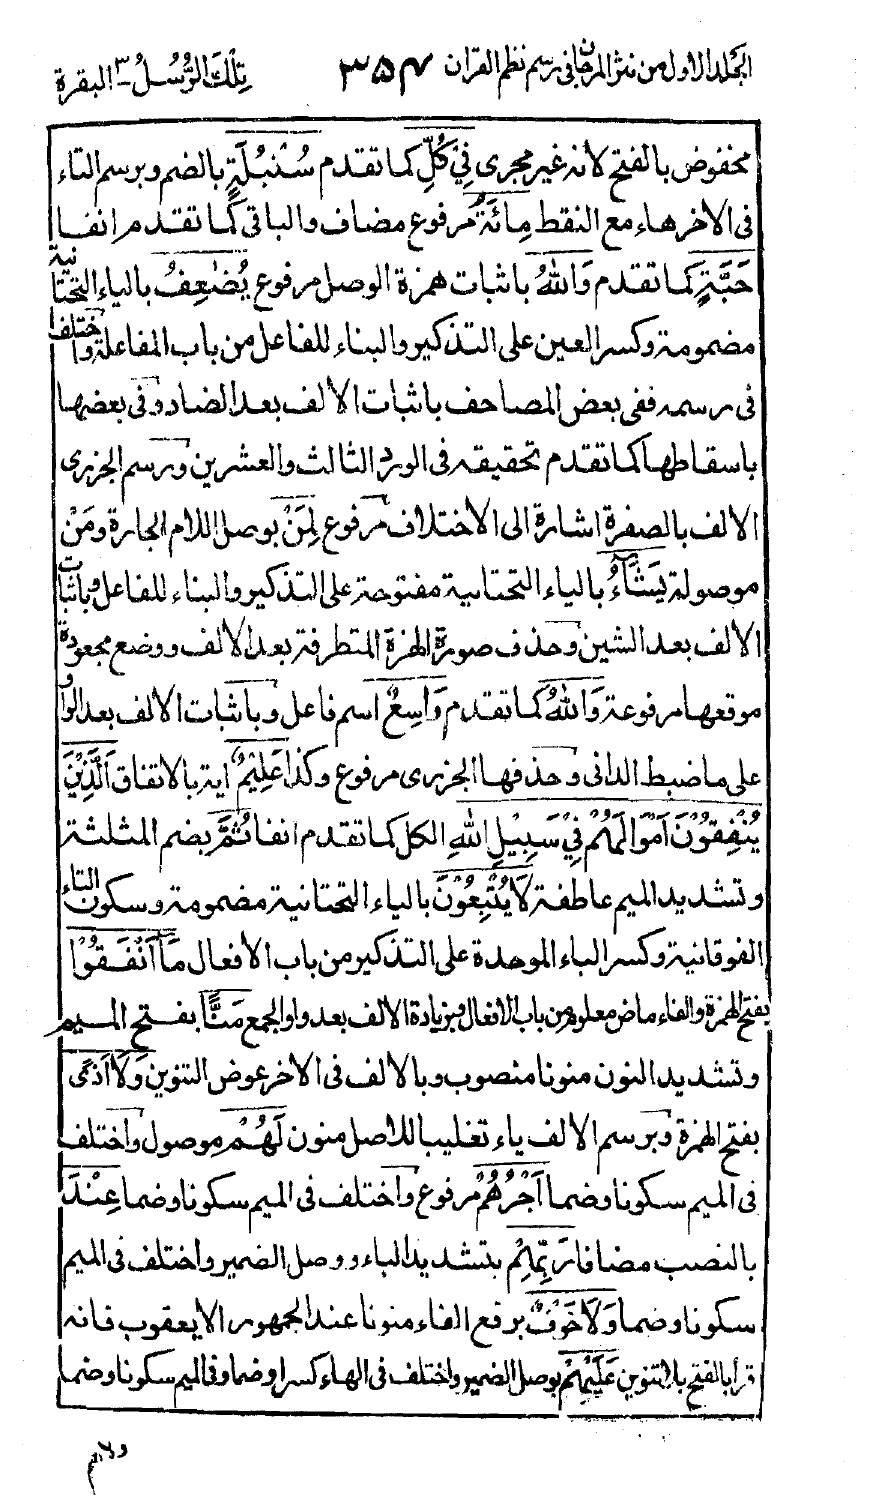 الجلد الاول من نثر المرجان فى رسم نظم القران ٣٥٧ تِلْكَ الرُّسُلُ ٣ البقرة
مخفوض بالفتح لانه غير مجرى فِيْ كُلِّ كما تقدم سُنْۢبُلَةٍ بالضم وبرسم التاء
فى الاخر هاء مع النقط مِائَةُ مرفوع مضاف والباقى كما تقدم انفا
حَبَّةٍ كما تقدم وَاللهُ باثبات همزة الوصل مرفوع يُضٰعِفُ بالياء التحتانية
مضمومة وكسر العين على التذكير والبناء للفاعل من باب المفاعلة واختلف
فى رسمه ففى بعض المصاحف باثبات الالف بعد الضاد وفى بعضها
باسقاطها كما تقدم تحقيقه فى الورد الثالث والعشرين ورسم الجزرى
الالف بالصفرة اشارة الى الاختلاف مرفوع لِمَنْ بوصل اللام الجارة ومَنْ
موصولة يَشَآءُ بالياء التحتانية مفتوحة على التذكير والبناء للفاعل وباثبات
الالف بعد الشين وحذف صورة الهمزة المتطرفة بعد الالف ووضع مجعودة
موقعها مرفوعة وَاللهُ كما تقدم وَاسِعٌ اسم فاعل وباثبات الالف بعد الواو
على ما ضبط الدانى وحذفها الجزرى مرفوع وكذا عَلِيْمٌ اية بالاتفاق اَلَّذِيْنَ
يُنْفِقُوْنَ اَمْوَالَهُمْ فِيْ سَبِيْلِ اللهِ الكل كما تقدم انفا ثُمَّ بضم المثلثة
وتشديد الميم عاطفة لَا يُتْبِعُوْنَ بالياء التحتانية مضمومة وسكون التاء
الفوقانية وكسر الباء الموحدة على التذكير من باب الافعال مَآ اَنْفَقُوْا
بفتح الهمزة والفاء ماض معلوم من باب الافعال وبزيادة الالف بعد واو الجمع مَنًّا بفتح الميم
وتشديد النون منونا منصوب وبالالف فى الاخر عوض التنوين وَلَآ اَذًى
بفتح الهمزة وبرسم الالف ياء تغليبا للاصل منون لَهُمْ موصول واختلف
فى الميم سكونا وضما اَجْرُهُمْ مرفوع واختلف فى الميم سكونا وضما عِنْدَ
بالنصب مضافا رَبِّهِمْ بتشديد الباء ووصل الضمير واختلف فى الميم
سكونا وضما وَلَا خَوْفٌ برفع الفاء منونا عند الجمهور الا يعقوب فانه
قرأ بالفتح بلا تنوين عَلَيْهِمْ بوصل الضمير واختلف فى الهاء كسرا وضما وفى الميم سكونا وضما
ولاهم